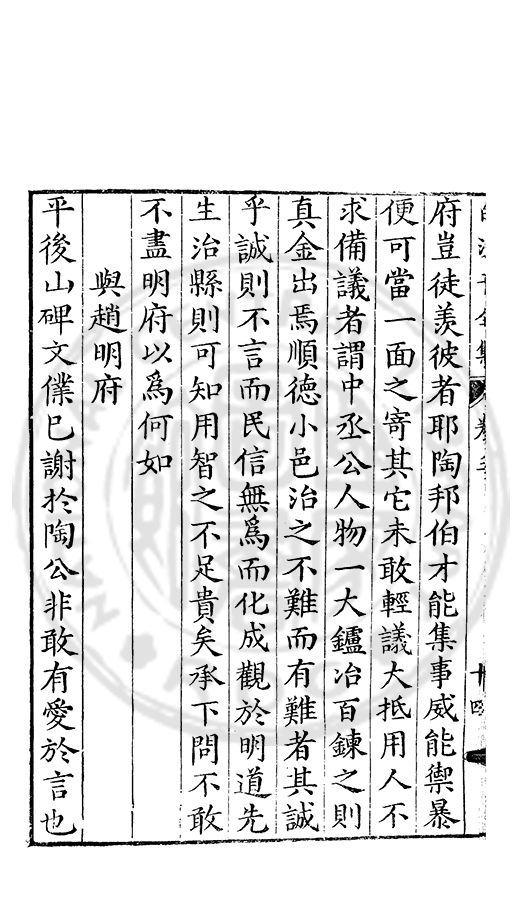 府豈徒羨彼者耶陶邦伯才能集事威能禦暴
便可當一面之寄其它未敢輕議大抵用人不
求備議者謂中丞公人物一大鑪冶百鍊之則
真金出焉順德小邑治之不難而有難者其誠
乎誠則不言而民信無爲而化成觀於明道先
生治縣則可知用智之不足貴矣承下問不敢
不盡明府以爲何如
與趙明府
平後山碑文僕已謝於陶公非敢有愛於言也